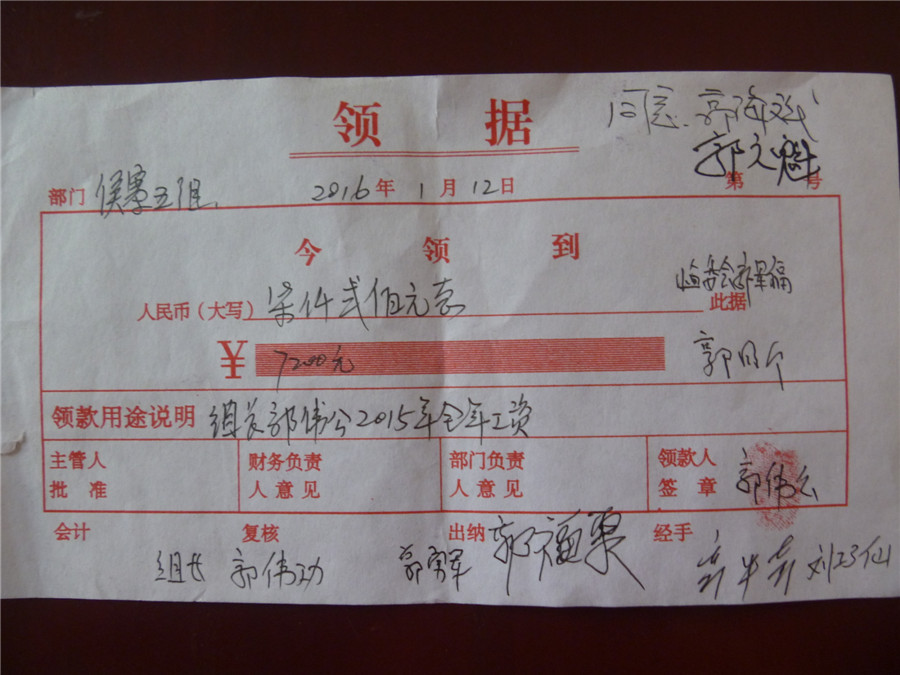 领 据
同意.
郭元魁
第 号
部门 侯墨五组. 2016年 1月 12日
今 领 到
人民币（大写） 柒仟贰佰元整 此据
¥ 7200元
领款用途说明 组长郭伟公2015年全年工资
主管人 批准 财务负责人意见 部门负责人意见 领款人签章 郭伟公
会计 复核 出纳 经手
组长 郭伟功 郭勇军 刘巧仙